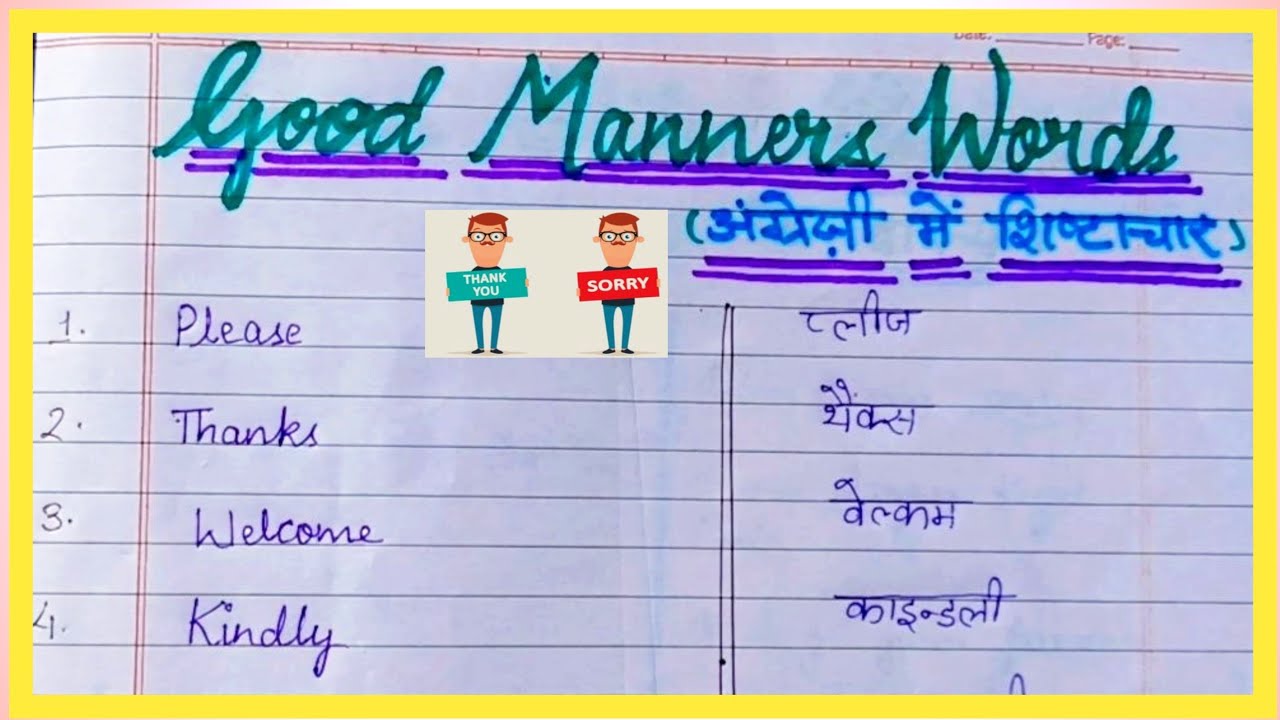 Date: Page:
Good Manners Words
(अंग्रेज़ी में शिष्टाचार)
THANK
YOU
SORRY
1. Please प्लीज
2. Thanks थैंक्स
3. Welcome वेल्कम
4. Kindly काइन्डली